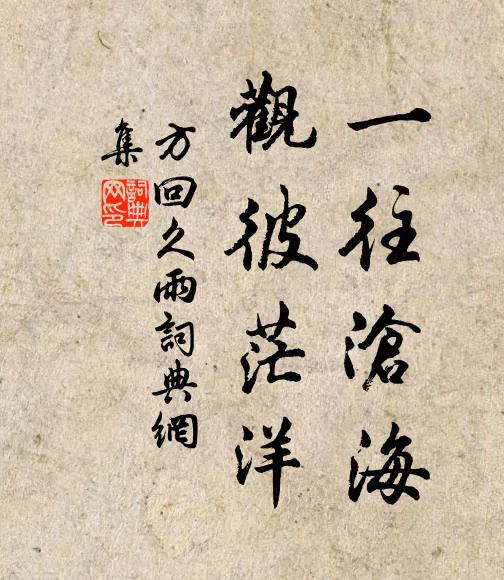 一往滄海
觀彼茫洋
方回久雨詞典網
集
詞典網印